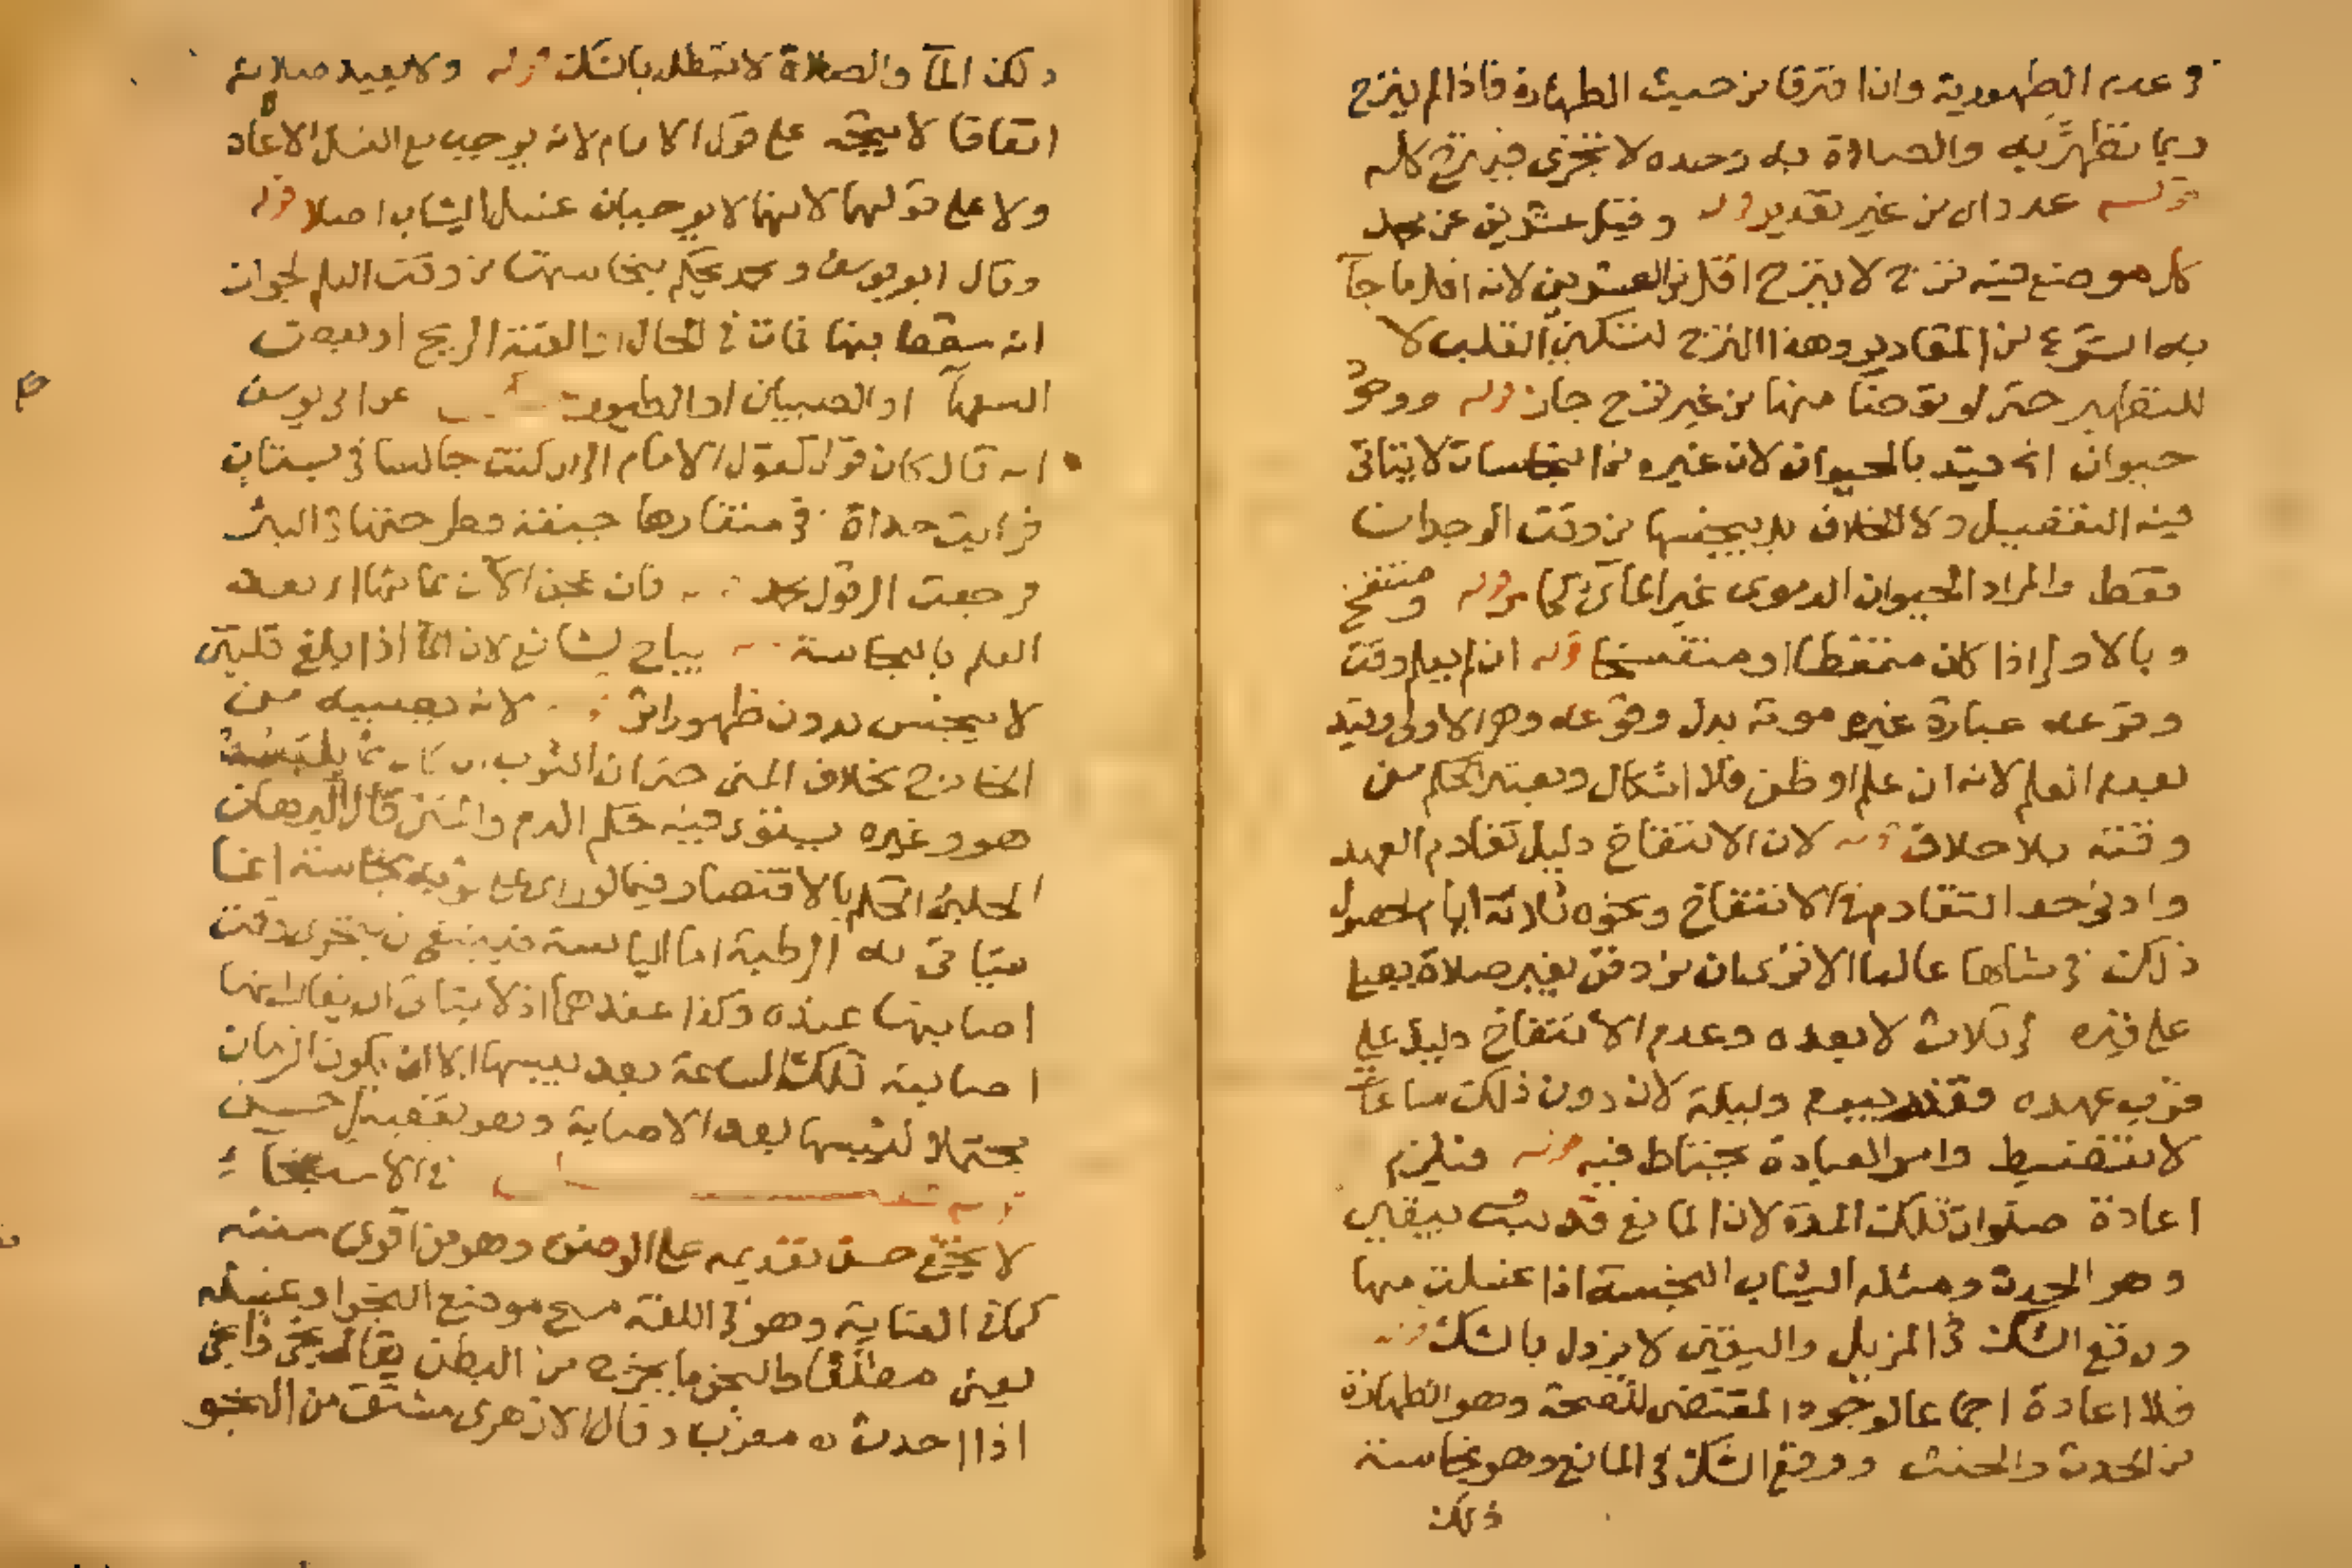 وعدم الطهورية وان افترقا من حيث الطهارة فاذا لم ينزح
ربما تطهر به والصلاة به وحده لا تجزى فينزح كله
قوله عدد اى من غير تقدير قوله وقيل عشرين عن محمد
كل موضع فيه نزح لا ينزح اقل من العشرين لانه اقل ما جآ
به الشرع من المقادير وهذا النزح لتسكين القلب لا
للتطهير حتى لو توضا منها من غير نزح جاز قوله ووجود
حيوان انه قيد بالحيوان لان غيره من النجاسات لا يتاتى
فيه التفصيل ولا الخلاف بل ينجسها من وقت الوجدان
فقط والمراد الحيوان الدموى غير المائى كما مر قوله ومنتفخ
وبالاولى اذا كان متمعطا او متفسخا قوله ان لم يعلم وقت
وقوعه عبارة غيره موته بدل وقوعه وهو الاولى وقيد
بعدم العلم لانه ان علم او ظن فلا اشكال ويعتبر الحكم من
وقته بلا خلاف قوله لان الانتفاخ دليل تقادم العهد
وادنى حد التقادم فى الانتفاخ ونحوه ثلاثة ايام لحصول
ذلك فى مثلها غالبا الا ترى ان من دفن بغير صلاة يصلى
على قبره الى ثلاث لا بعده وعدم الانتفاخ دليل على
قرب عهده فقدر بيوم وليلة لان دون ذلك ساعات
لا تنضبط وامر العبادة يحتاط فيه قوله فيلزم
اعادة صلوات تلك المدة لان المانع قد ثبت بيقين
وهو الحدث ومثله الثياب النجسة اذا غسلت منها
ووقع الشك فى المزيل واليقين لا يزول بالشك قوله
فلا اعادة اجماعا لوجود المقتضى للصحة وهو الطهارة
من الحدث والخبث ووقع الشك فى المانع وهو نجاسة
ذلك
ذلك المآ والصلاة لا تبطل بالشك قوله ولا يعيد صلاته
اتفاقا لا يتجه على قول الامام لانه يوجب مع الغسل الاعادة
ولا على قولهما لانهما لا يوجبان غسل الثياب اصلا قوله
وقال ابو يوسف ومحمد يحكم بنجاستها من وقت العلم لجواز
انه سقط فيها فمات فى الحال او القته الريح او بعض
السفهآ او الصبيان او الطيور عن ابى يوسف
انه قال كان قولى كقول الامام الى ان كنت جالسا فى بستان
فرايت حداة فى منقارها جيفة فطرحتها فى البئر
فرجعت الى قول محمد فان عجن الآن بمائها اربعد
العلم بالنجاسة يباح لشافعى لان المآ اذا بلغ قلتين
لا ينجس بدون ظهور اثر لانه يصيبه من
الخارج بخلاف المنى حتى ان الثوب ان كان مما يلبسه
هو وغيره يستوى فيه حكم الدم والمنى قال البرهان
الحلبى الحكم بالاقتصار فيما لو راى على ثوبه نجاسة انما
يتاتى له الرطبة اما اليابسة فينبغى ان يتحرى وقت
اصابتها عنده وكذا عندهما اذ لا يتاتى ان يقال انها
اصابته تلك الساعة بعد يبسها الا ان يكون الزمان
محتملا ليبسها بعد الاصابة وهو تفصيل حسن
فى الاستنجاء
لا يخفى حسن تقديمه على الوضوء وهو من اقوى سننه
كما فى العناية وهو فى اللغة مسح موضع النجو او غسله
يعنى مطلقا والنجو ما يخرج من البطن يقال نجى وانجى
اذا احدث مغرب وقال الازهرى مشتق من النجو